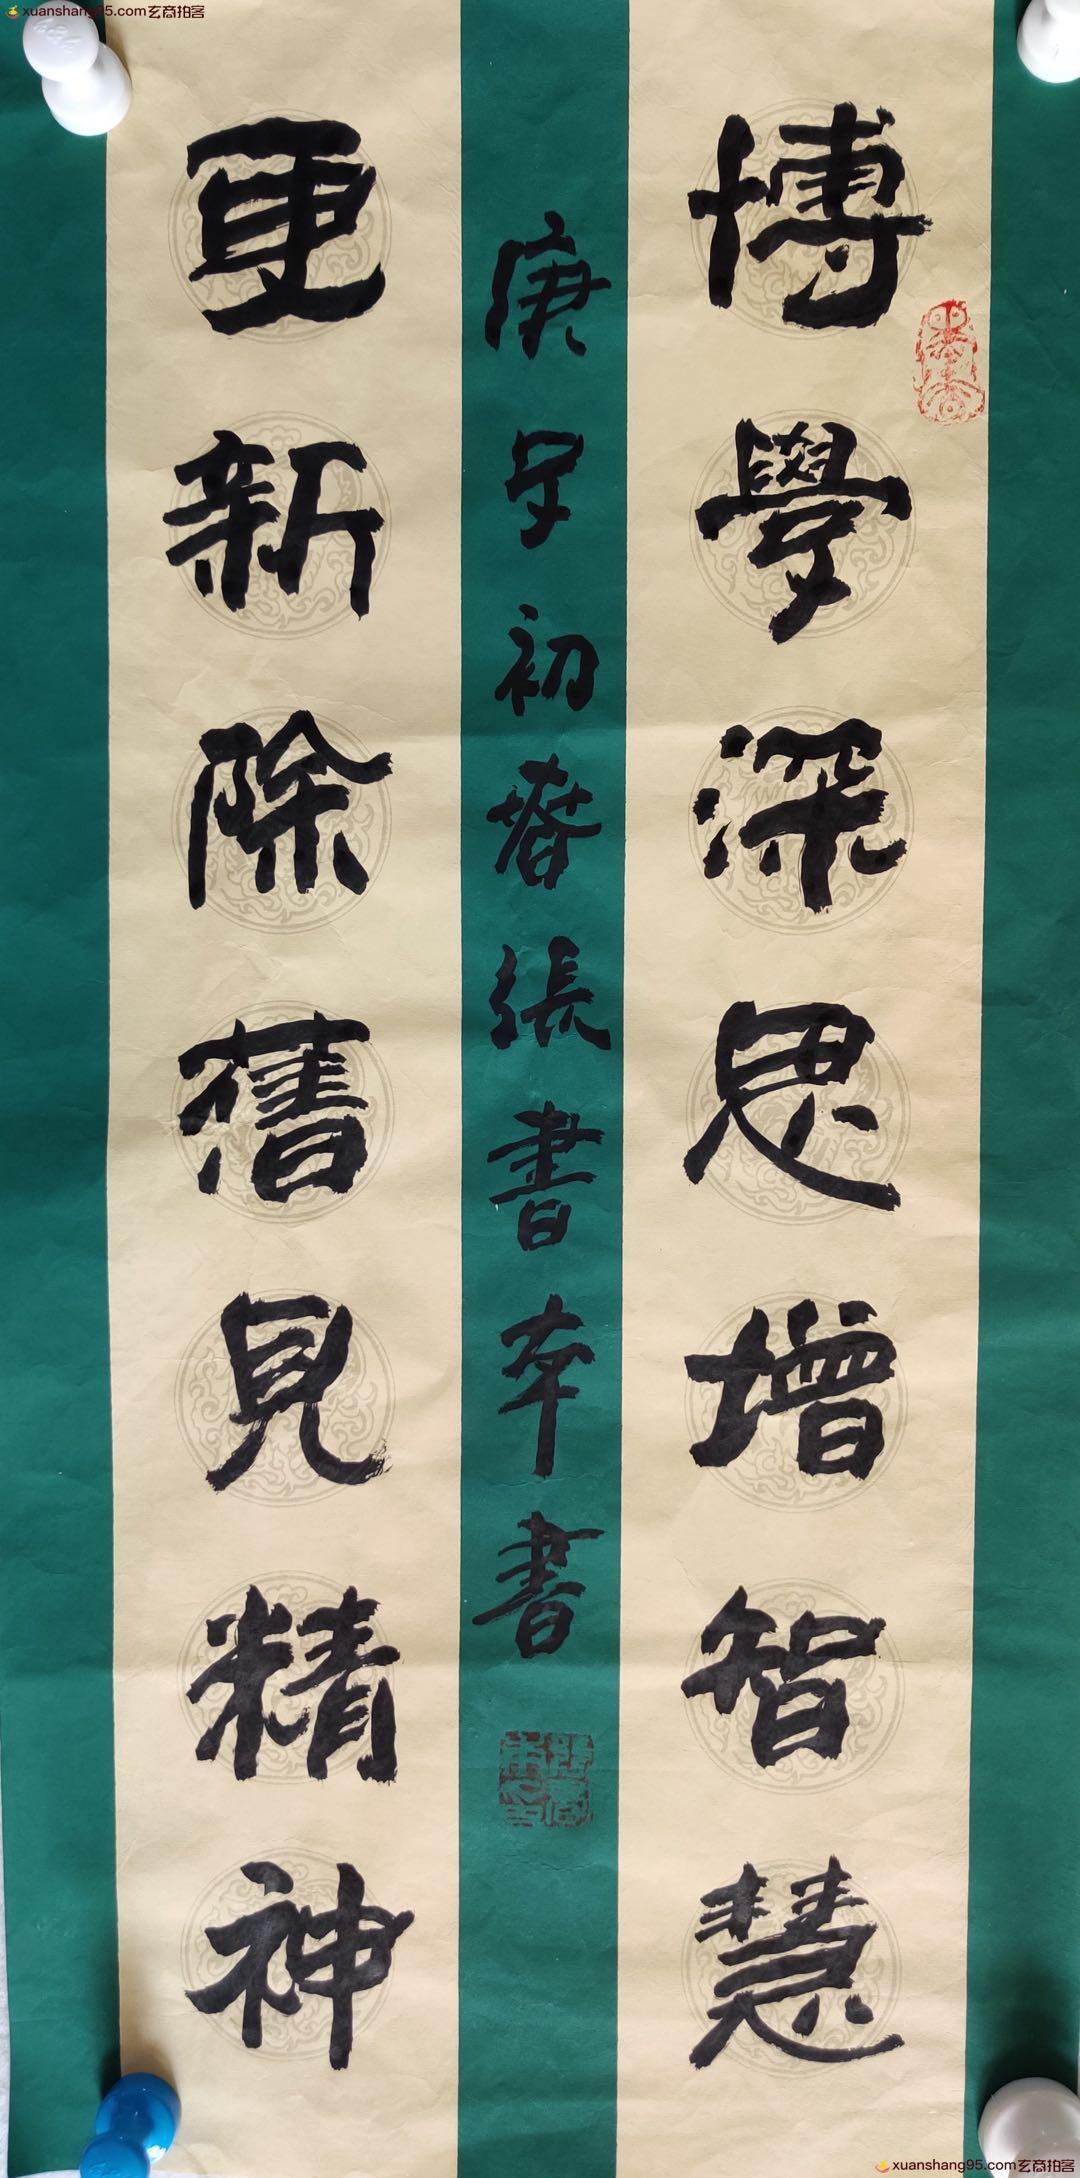 xuanshang95.com玄商拍客
博學深思增智慧
更新除舊見精神
庚子初春張書本書
xuanshang95.com玄商拍客